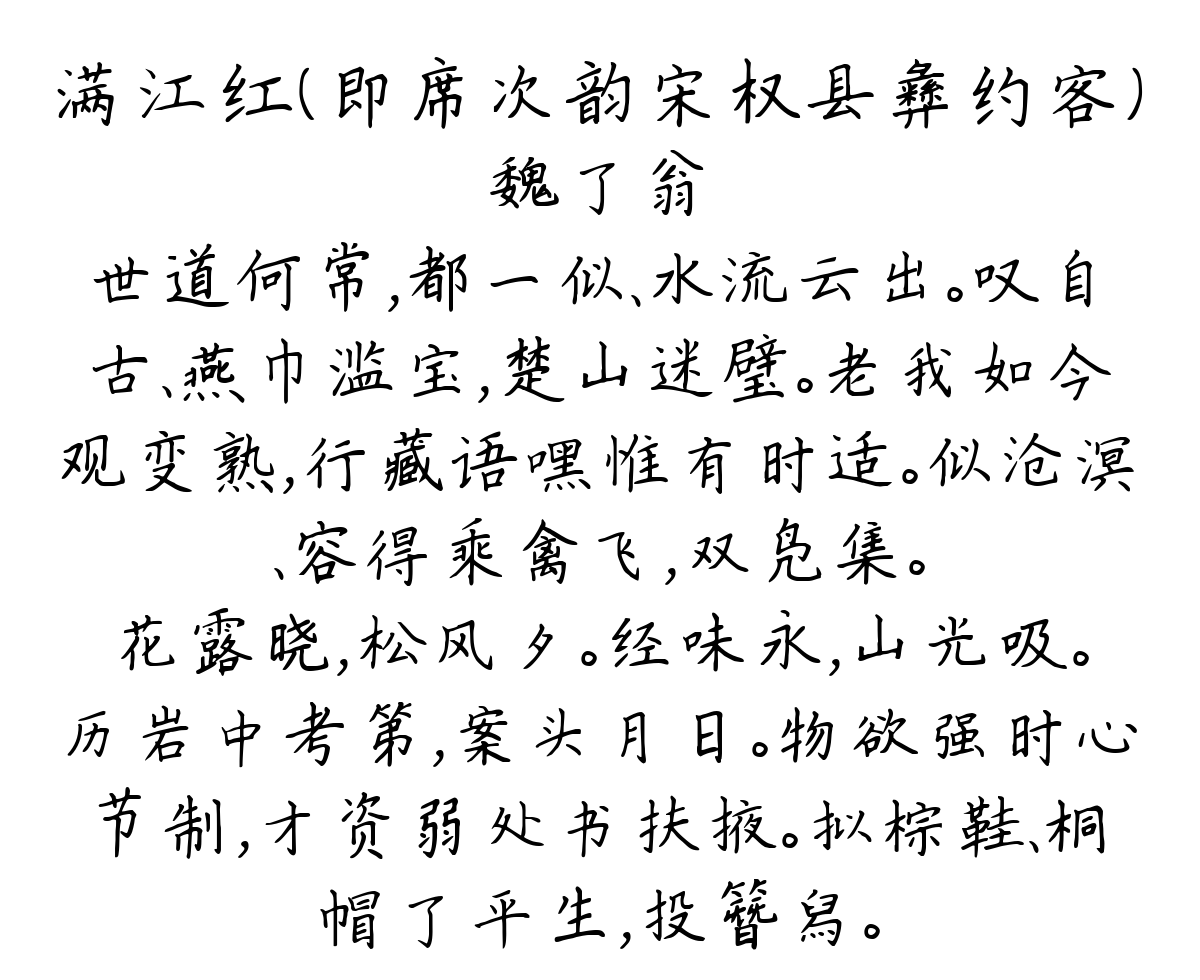 满江红(即席次韵宋权县彝约客)
魏了翁
世道何常,都一似、水流云出。叹自
古、燕巾滥宝,楚山迷璧。老我如今
观变熟,行藏语嘿惟有时适。似沧溟
、容得乘禽飞,双凫集。
花露晓,松风夕。经味永,山光吸。
历岩中考第,案头月日。物欲强时心
节制,才资弱处书扶掖。拟棕鞋、桐
帽了平生,投簪舄。